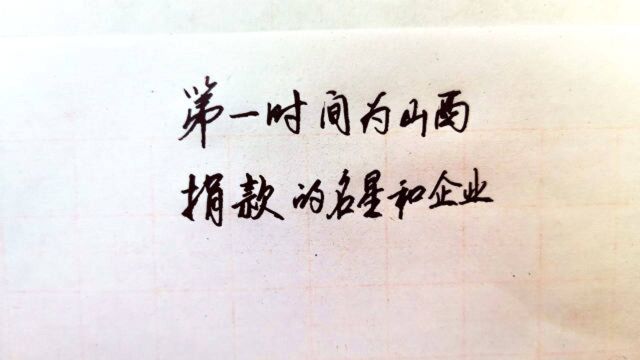 第一时间为山西
捐款的名星和企业